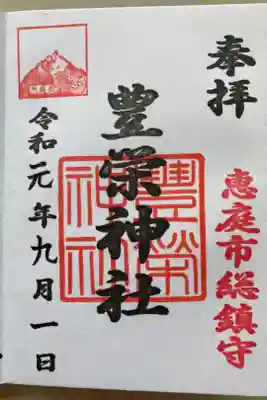 奉拝
恵庭市総鎮守
豊栄神社
豊榮神社
令和元年九月一日